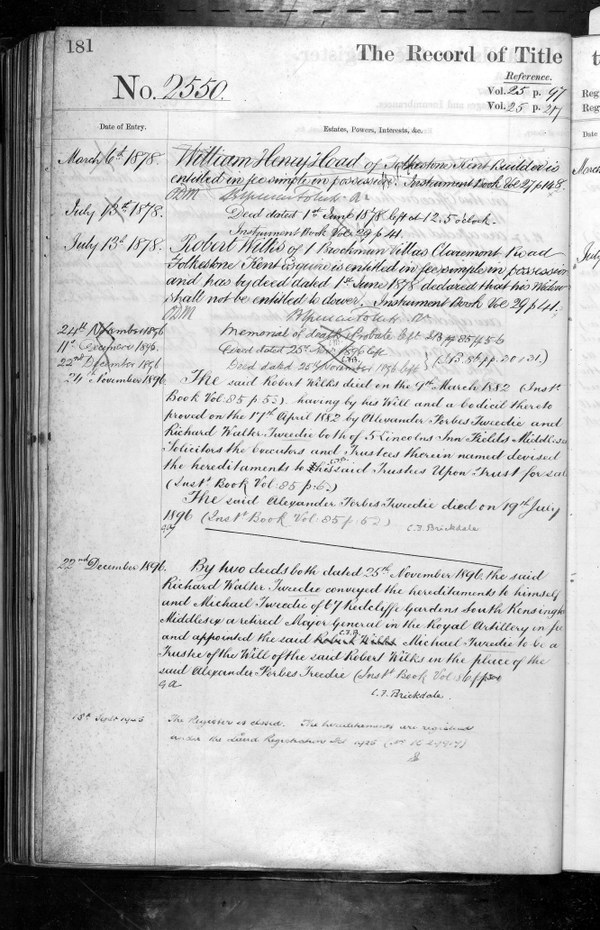 181
The Record of Title
No. 2550.
Reference.
Vol. 25 p. 97
Vol. 25 p. 217
Date of Entry.
Estates, Powers, Interests, &c.
March 6th 1878.
William Henry Coad of Folkestone Kent Builder is
entitled in fee simple in possession. Instrument Book Vol 27 p 148
July 13th 1878.
Deed dated 1st June 1878 left at 12.5 o'clock.
Instrument Book Vol 29 p 41.
July 13th 1878.
Robert Wilks of 1 Brockman Villas Claremont Road
Folkestone Kent Esquire is entitled in fee simple in possession
and has by deed dated 1st June 1878 declared that his Widow
shall not be entitled to dower. Instrument Book Vol 29 p 41.
24th November 1896
Memorial of death & Probate left
11th December 1896.
Deed dated 25th Nov 1896 left
22nd December 1896
Deed dated 25 November 1896 left
24 November 1896
The said Robert Wilks died on the 9th March 1882 (Inst.
Book Vol. 85 p. 5) having by his Will and a codicil thereto
proved on the 17th April 1882 by Alexander Forbes Tweedie and
Richard Walter Tweedie both of 5 Lincolns Inn Fields Middlesex
Solicitors the Executors and Trustees therein named devised
the hereditaments to his said Trustees Upon Trust for sale
(Inst. Book Vol. 85 p. 6.)
The said Alexander Forbes Tweedie died on 19th July
1896 (Inst. Book Vol 85 p. 5)
C.F. Brickdale
22nd December 1896.
By two deeds both dated 25th November 1896 the said
Richard Walter Tweedie conveyed the hereditaments to himself
and Michael Tweedie of 67 Redcliffe Gardens South Kensington
Middlesex a retired Major General in the Royal Artillery in fee
and appointed the said Robert Wilks Michael Tweedie to be a
Trustee of the Will of the said Robert Wilks in the place of the
said Alexander Forbes Treedie (Inst. Book Vol 86
C.F. Brickdale.
18th Sept 1926
The Register is closed. The hereditaments are registered
under the Land Registration Act 1925